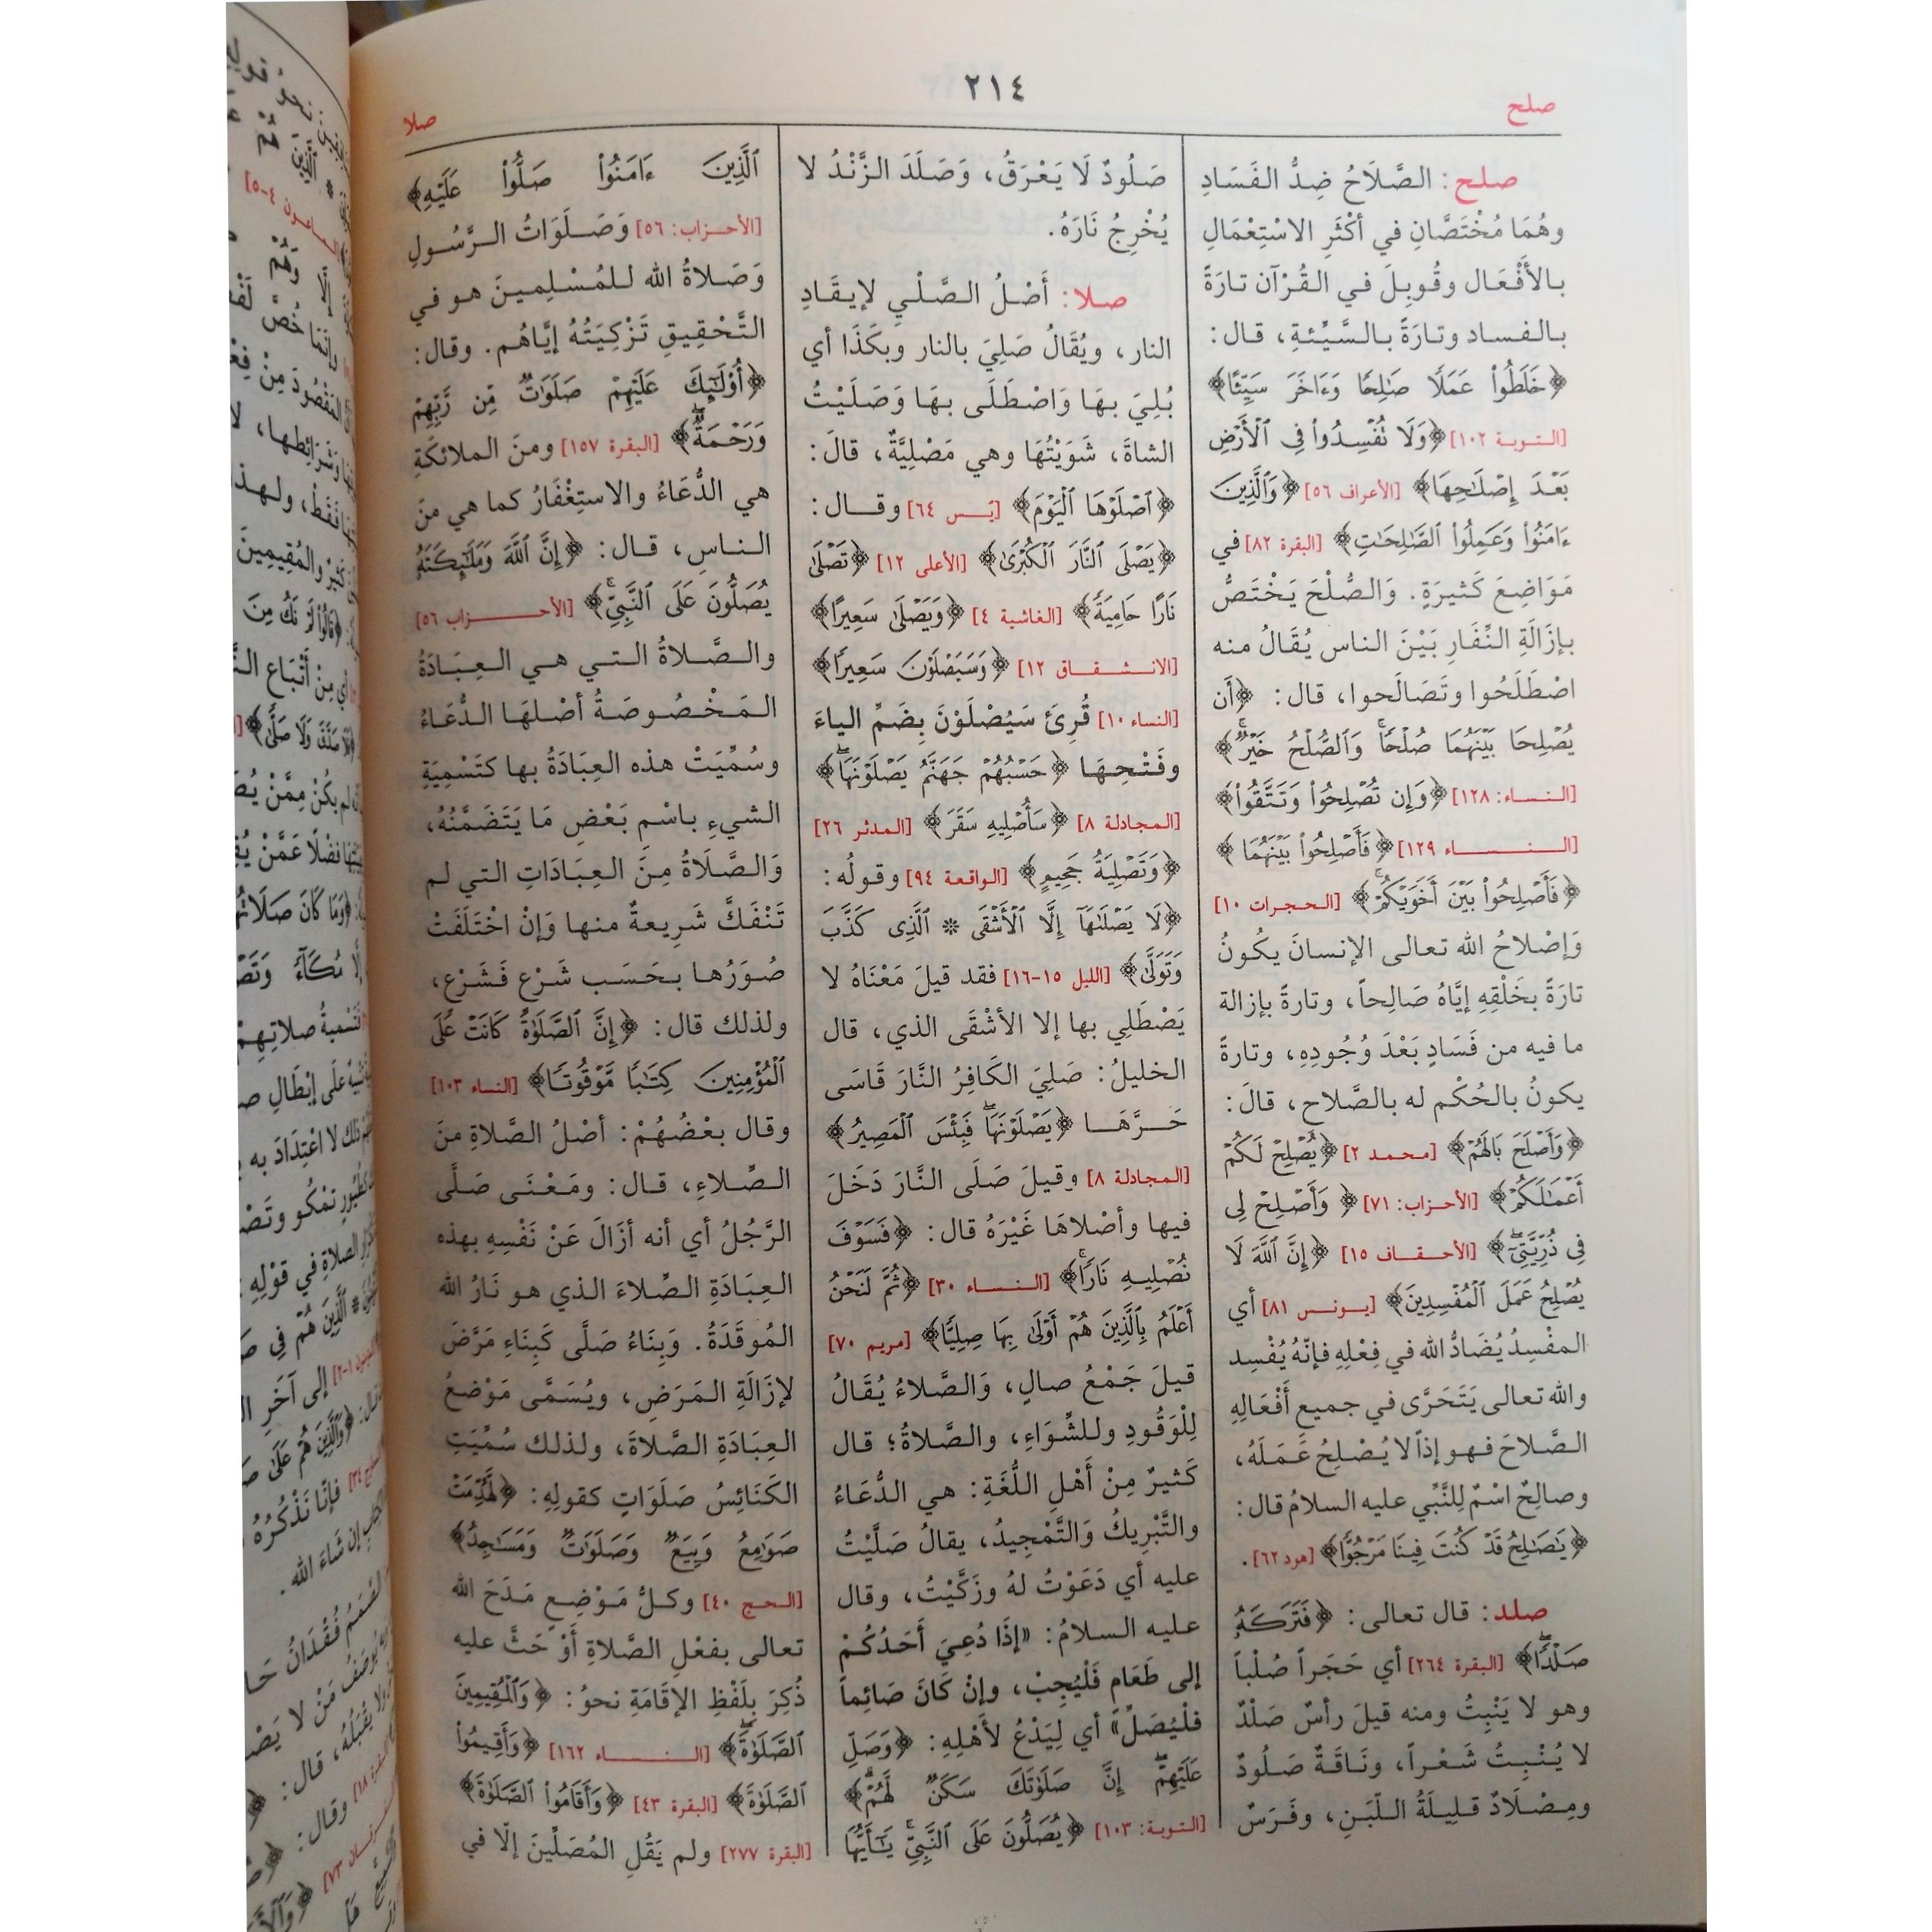 ٢١٤
صلح
صلا
صلح: الصَّلَاحُ ضِدُّ الفَسَادِ
وهُمَا مُخْتَصَّانِ في أكْثَرِ الاسْتِعْمَالِ
بالأفْعَال وقُوبِلَ في القُرْآن تارَةً
بالفساد وتارَةً بالسَّيِّئةِ، قال:
﴿خَلَطُواْ عَمَلًا صَٰلِحًا وَءَاخَرَ سَيِّئًا﴾
[التوبة ١٠٢] ﴿وَلَا تُفْسِدُواْ فِى ٱلْأَرْضِ
بَعْدَ إِصْلَٰحِهَا﴾ [الأعراف ٥٦] ﴿وَٱلَّذِينَ
ءَامَنُواْ وَعَمِلُواْ ٱلصَّٰلِحَٰتِ﴾ [البقرة ٨٢] في
مَوَاضِعَ كَثيرَةٍ. وَالصُّلْحَ يَخْتَصُّ
بإزَالَةِ النِّفَارِ بَيْنَ الناس يُقَالُ منه
اصْطَلَحُوا وتَصَالَحوا، قال: ﴿أَن
يُصْلِحَا بَيْنَهُمَا صُلْحًا ۚ وَٱلصُّلْحُ خَيْرٌ ۗ﴾
[النساء: ١٢٨] ﴿وَإِن تُصْلِحُواْ وَتَتَّقُواْ﴾
[النساء ١٢٩] ﴿فَأَصْلِحُواْ بَيْنَهُمَا﴾
﴿فَأَصْلِحُواْ بَيْنَ أَخَوَيْكُمْ ۚ﴾ [الحجرات ١٠]
وَإصْلاحُ الله تعالى الإنسانَ يكُونُ
تارَةً بخَلْقِهِ إيَّاهُ صَالِحاً، وتارةً بإزالة
ما فيه من فَسَادٍ بَعْدَ وُجُودِهِ، وتارةً
يكونُ بالحُكْم له بالصَّلاح، قالَ:
﴿وَأَصْلَحَ بَالَهُمْ﴾ [محمد ٢] ﴿يُصْلِحْ لَكُمْ
أَعْمَٰلَكُمْ﴾ [الأحزاب: ٧١] ﴿وَأَصْلِحْ لِى
فِى ذُرِّيَّتِىٓ ۖ﴾ [الأحقاف ١٥] ﴿إِنَّ ٱللَّهَ لَا
يُصْلِحُ عَمَلَ ٱلْمُفْسِدِينَ﴾ [يونس ٨١] أي
المفْسِدُ يُضَادُّ الله في فِعْلِهِ فإنّهُ يُفْسِد
والله تعالى يَتَحَرَّى في جميع أَفْعَالِهِ
الصَّلاحَ فهو إذاً لا يُصْلِحُ عَمَلَهُ،
وصالِحٌ اسْمٌ لِلنَّبِّي عليه السلامُ قال:
﴿يَٰصَٰلِحُ قَدْ كُنتَ فِينَا مَرْجُوًّا﴾ [هود ٦٢].
صلد: قال تعالى: ﴿فَتَرَكَهُۥ
صَلْدًا ۖ﴾ [البقرة ٢٦٤] أي حَجَراً صُلْباً
وهو لا يَنْبِتُ ومنه قيلَ رأسٌ صَلْدٌ
لا يُنْبِتُ شَعْراً، ونَاقَةٌ صَلُودٌ
ومِصْلَادٌ قليلَةُ اللّبَنِ، وفَرَسٌ
صَلُودٌ لَا يَعْرَقُ، وَصَلَدَ الزَّنْدُ لا
يُخْرِجُ نَارَهُ.
صلا: أَصْلُ الصَّلْيِ لإيقَادِ
النار، ويُقَالُ صَلِيَ بالنار وبكَذَا أي
بُلِيَ بهَا وَاصْطَلَى بهَا وَصَلَيْتُ
الشاةَ، شَوَيْتُهَا وهي مَصْلِيَّةٌ، قالَ:
﴿ٱصْلَوْهَا ٱلْيَوْمَ﴾ [يَس ٦٤] وقال:
﴿يَصْلَى ٱلنَّارَ ٱلْكُبْرَىٰ﴾ [الأعلى ١٢] ﴿تَصْلَىٰ
نَارًا حَامِيَةً﴾ [الغاشية ٤] ﴿وَيَصْلَىٰ سَعِيرًا﴾
[الانشقاق ١٢] ﴿وَسَيَصْلَوْنَ سَعِيرًا﴾
[النساء ١٠] قُرِئَ سَيُصْلَوْنَ بِضَمِّ الياءَ
وفَتْحِهَا ﴿حَسْبُهُمْ جَهَنَّمُ يَصْلَوْنَهَا ۖ﴾
[المجادلة ٨] ﴿سَأُصْلِيهِ سَقَرَ﴾ [المدثر ٢٦]
﴿وَتَصْلِيَةُ جَحِيمٍ﴾ [الواقعة ٩٤] وقولُه:
﴿لَا يَصْلَىٰهَآ إِلَّا ٱلْأَشْقَى * ٱلَّذِى كَذَّبَ
وَتَوَلَّىٰ﴾ [الليل ١٥-١٦] فقد قيلَ مَعْنَاهُ لا
يَصْطَلِي بها إلا الأشْقَى الذي، قال
الخليلُ: صَلِيَ الكَافِرُ النَّارَ قَاسَى
حَرَّهَا ﴿يَصْلَوْنَهَا ۖ فَبِئْسَ ٱلْمَصِيرُ﴾
[المجادلة ٨] وقيلَ صَلَى النَّارَ دَخَلَ
فيها وأصْلاهَا غَيْرَهُ قال: ﴿فَسَوْفَ
نُصْلِيهِ نَارًا ۚ﴾ [النساء ٣٠] ﴿ثُمَّ لَنَحْنُ
أَعْلَمُ بِٱلَّذِينَ هُمْ أَوْلَىٰ بِهَا صِلِيًّا﴾ [مريم ٧٠]
قيلَ جَمْعُ صالٍ، وَالصَّلاءُ يُقَالُ
لِلْوَقُودِ وللشِّوَاءِ، والصَّلاةُ؛ قال
كَثيرٌ مِنْ أَهْلِ اللُّغَةِ: هي الدُّعَاءُ
والتَّبْرِيكُ وَالتَّمْجِيدُ، يقالُ صَلَّيْتُ
عليه أي دَعَوْتُ لهُ وزَكَّيْتُ، وقال
عليه السلامُ: «إذَا دُعِيَ أَحَدُكُمْ
إلى طَعَامٍ فَلْيُجِبْ، وإنْ كَانَ صَائِماً
فلْيُصَلِّ» أي لِيَدْعُ لأهْلِهِ: ﴿وَصَلِّ
عَلَيْهِمْ ۖ إِنَّ صَلَوٰتَكَ سَكَنٌ لَّهُمْ ۗ﴾
[التوبة: ١٠٣] ﴿يُصَلُّونَ عَلَى ٱلنَّبِىِّ ۚ يَٰٓأَيُّهَا
ٱلَّذِينَ ءَامَنُواْ صَلُّواْ عَلَيْهِ﴾
[الأحزاب: ٥٦] وَصَلَوَاتُ الرَّسُولِ
وَصَلاةُ الله للمُسْلِمينَ هو في
التَّحْقِيقِ تَزْكِيَتُهُ إيَّاهُم. وقال:
﴿أُوْلَٰٓئِكَ عَلَيْهِمْ صَلَوَٰتٌ مِّن رَّبِّهِمْ
وَرَحْمَةٌ ۖ﴾ [البقرة ١٥٧] ومنَ الملائكَةِ
هي الدُّعَاءُ والاستِغْفَارُ كما هي منَ
الناسِ، قال: ﴿إِنَّ ٱللَّهَ وَمَلَٰٓئِكَتَهُۥ
يُصَلُّونَ عَلَى ٱلنَّبِىِّ ۚ﴾ [الأحزاب ٥٦]
والصَّلاةُ التي هي العِبَادَةُ
المَخْصُوصَةُ أصْلهَا الدُّعَاءُ
وسُمِّيَتْ هذه العِبَادَةُ بها كتَسْمِيَةِ
الشيءِ باسْمِ بَعْضِ مَا يَتَضَمَّنُهُ،
وَالصَّلَاةُ مِنَ العِبَادَاتِ التي لم
تَنْفَكَّ شَرِيعةٌ منها وَإنْ اخْتَلَفَتْ
صُوَرُها بحَسَب شَرْع فَشَرْع،
ولذلك قال: ﴿إِنَّ ٱلصَّلَوٰةَ كَانَتْ عَلَى
ٱلْمُؤْمِنِينَ كِتَٰبًا مَّوْقُوتًا﴾ [النساء ١٠٣]
وقال بعْضُهُمْ: أصْلُ الصَّلاةِ منَ
الصِّلاءِ، قال: ومَعْنَى صَلَّى
الرَّجُلُ أي أنه أزَالَ عَنْ نَفْسِهِ بهذه
العِبَادَةِ الصِّلاءَ الذي هو نَارُ الله
المُوقَدَةُ. وَبِنَاءُ صَلَّى كَبِنَاءِ مَرَّضَ
لإزَالَةِ المَرَضِ، ويُسَمَّى مَوْضعُ
العِبَادَةِ الصَّلاةَ، ولذلك سُمِّيَتِ
الكَنَائِسُ صَلَوَاتٍ كقولِهِ: ﴿لَّهُدِّمَتْ
صَوَٰمِعُ وَبِيَعٌ وَصَلَوَٰتٌ وَمَسَٰجِدُ﴾
[الحج ٤٠] وكلُّ مَوْضِعٍ مَدَحَ الله
تعالى بفعْلِ الصَّلاةِ أوْ حَثَّ عليه
ذُكِرَ بِلَفْظِ الإقَامَةِ نحوُ: ﴿وَٱلْمُقِيمِينَ
ٱلصَّلَوٰةَ ۚ﴾ [النساء ١٦٢] ﴿وَأَقِيمُواْ
ٱلصَّلَوٰةَ﴾ [البقرة ٤٣] ﴿وَأَقَامُواْ ٱلصَّلَوٰةَ﴾
[البقرة ٢٧٧] ولم يَقُلِ المُصَلِّينَ إلّا في